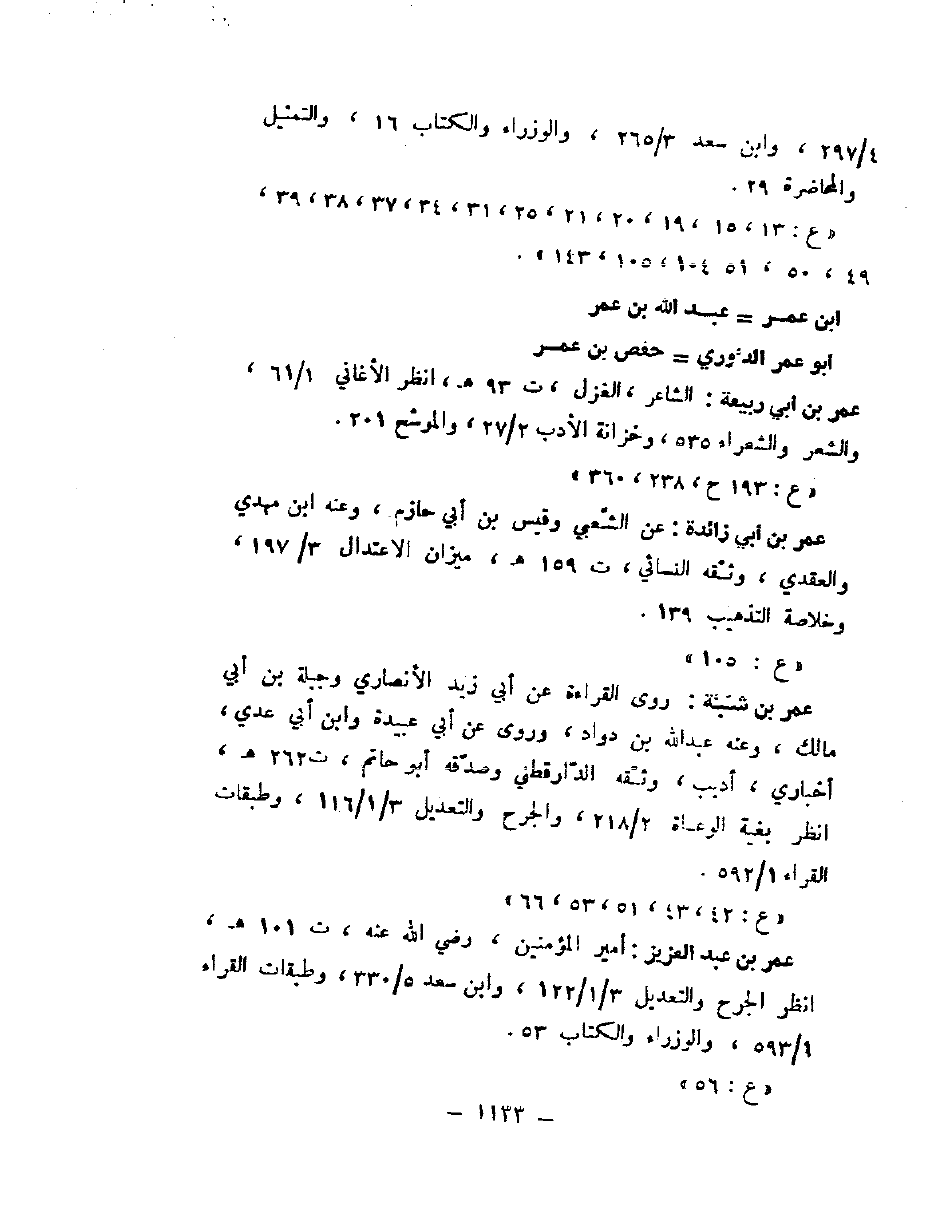 ٢٩٧/٤ ، وابن سعد ٢٦٥/٣ ، والوزراء والكتاب ١٦ ، والتمثيل
والمحاضرة ٢٩ .
« ع : ١٣ ، ١٥ ، ١٩ ، ٢٠ ، ٢١ ، ٢٥ ، ٣١ ، ٣٤ ، ٣٧ ، ٣٨ ، ٣٩ ،
٤٩ ، ٥٠ ، ٥١ ١٠٤ ، ١٠٥ ، ١٤٣ » .
ابن عمـر = عبـد الله بن عمر
ابو عمر الدّوري = حفص بن عمـر
عمر بن ابي ربيعة : الشاعر ، الغزل ، ت ٩٣ هـ ، انظر الأغاني ٦١/١ ،
والشعر والشعراء ٥٣٥ ، وخزانة الأدب ٢٧/٢ ، والموشح ٢٠١ .
« ع : ١٩٣ ح ، ٢٣٨ ، ٣٦٠ »
عمر بن ابي زائدة : عن الشّعبي وقيس بن أبي حازم ، وعنه ابن مهدي
والعقدي ، وثّقه النسائي ، ت ١٥٩ هـ ، ميزان الاعتدال ١٩٧/٣ ،
وخلاصة التذهيب ١٣٩ .
« ع : ١٠٥ »
عمر بن شبّة : روى القراءة عن أبي زيد الأنصاري وجبلة بن أبي
مالك ، وعنه عبدالله بن دواد ، وروى عن أبي عبيدة وابن أبي عدي ،
أخباري ، أديب ، وثّقه الدّارقطني وصدّقه أبو حاتم ، ت ٢٦٢ هـ ،
انظر بغية الوعـاة ٢١٨/٢ ، والجرح والتعديل ١١٦/١/٣ ، وطبقات
القراء ٥٩٢/١ .
« ع : ٤٢ ، ٤٣ ، ٥١ ، ٥٣ ، ٦٦ »
عمر بن عبد العزيز : أمير المؤمنين ، رضي الله عنه ، ت ١٠١ هـ ،
انظر الجرح والتعديل ١٢٢/١/٣ ، وابن سعد ٣٣٠/٥ ، وطبقات القراء
٥٩٣/١ ، والوزراء والكتاب ٥٣ .
« ع : ٥٦ »
– ١١٣٣ –